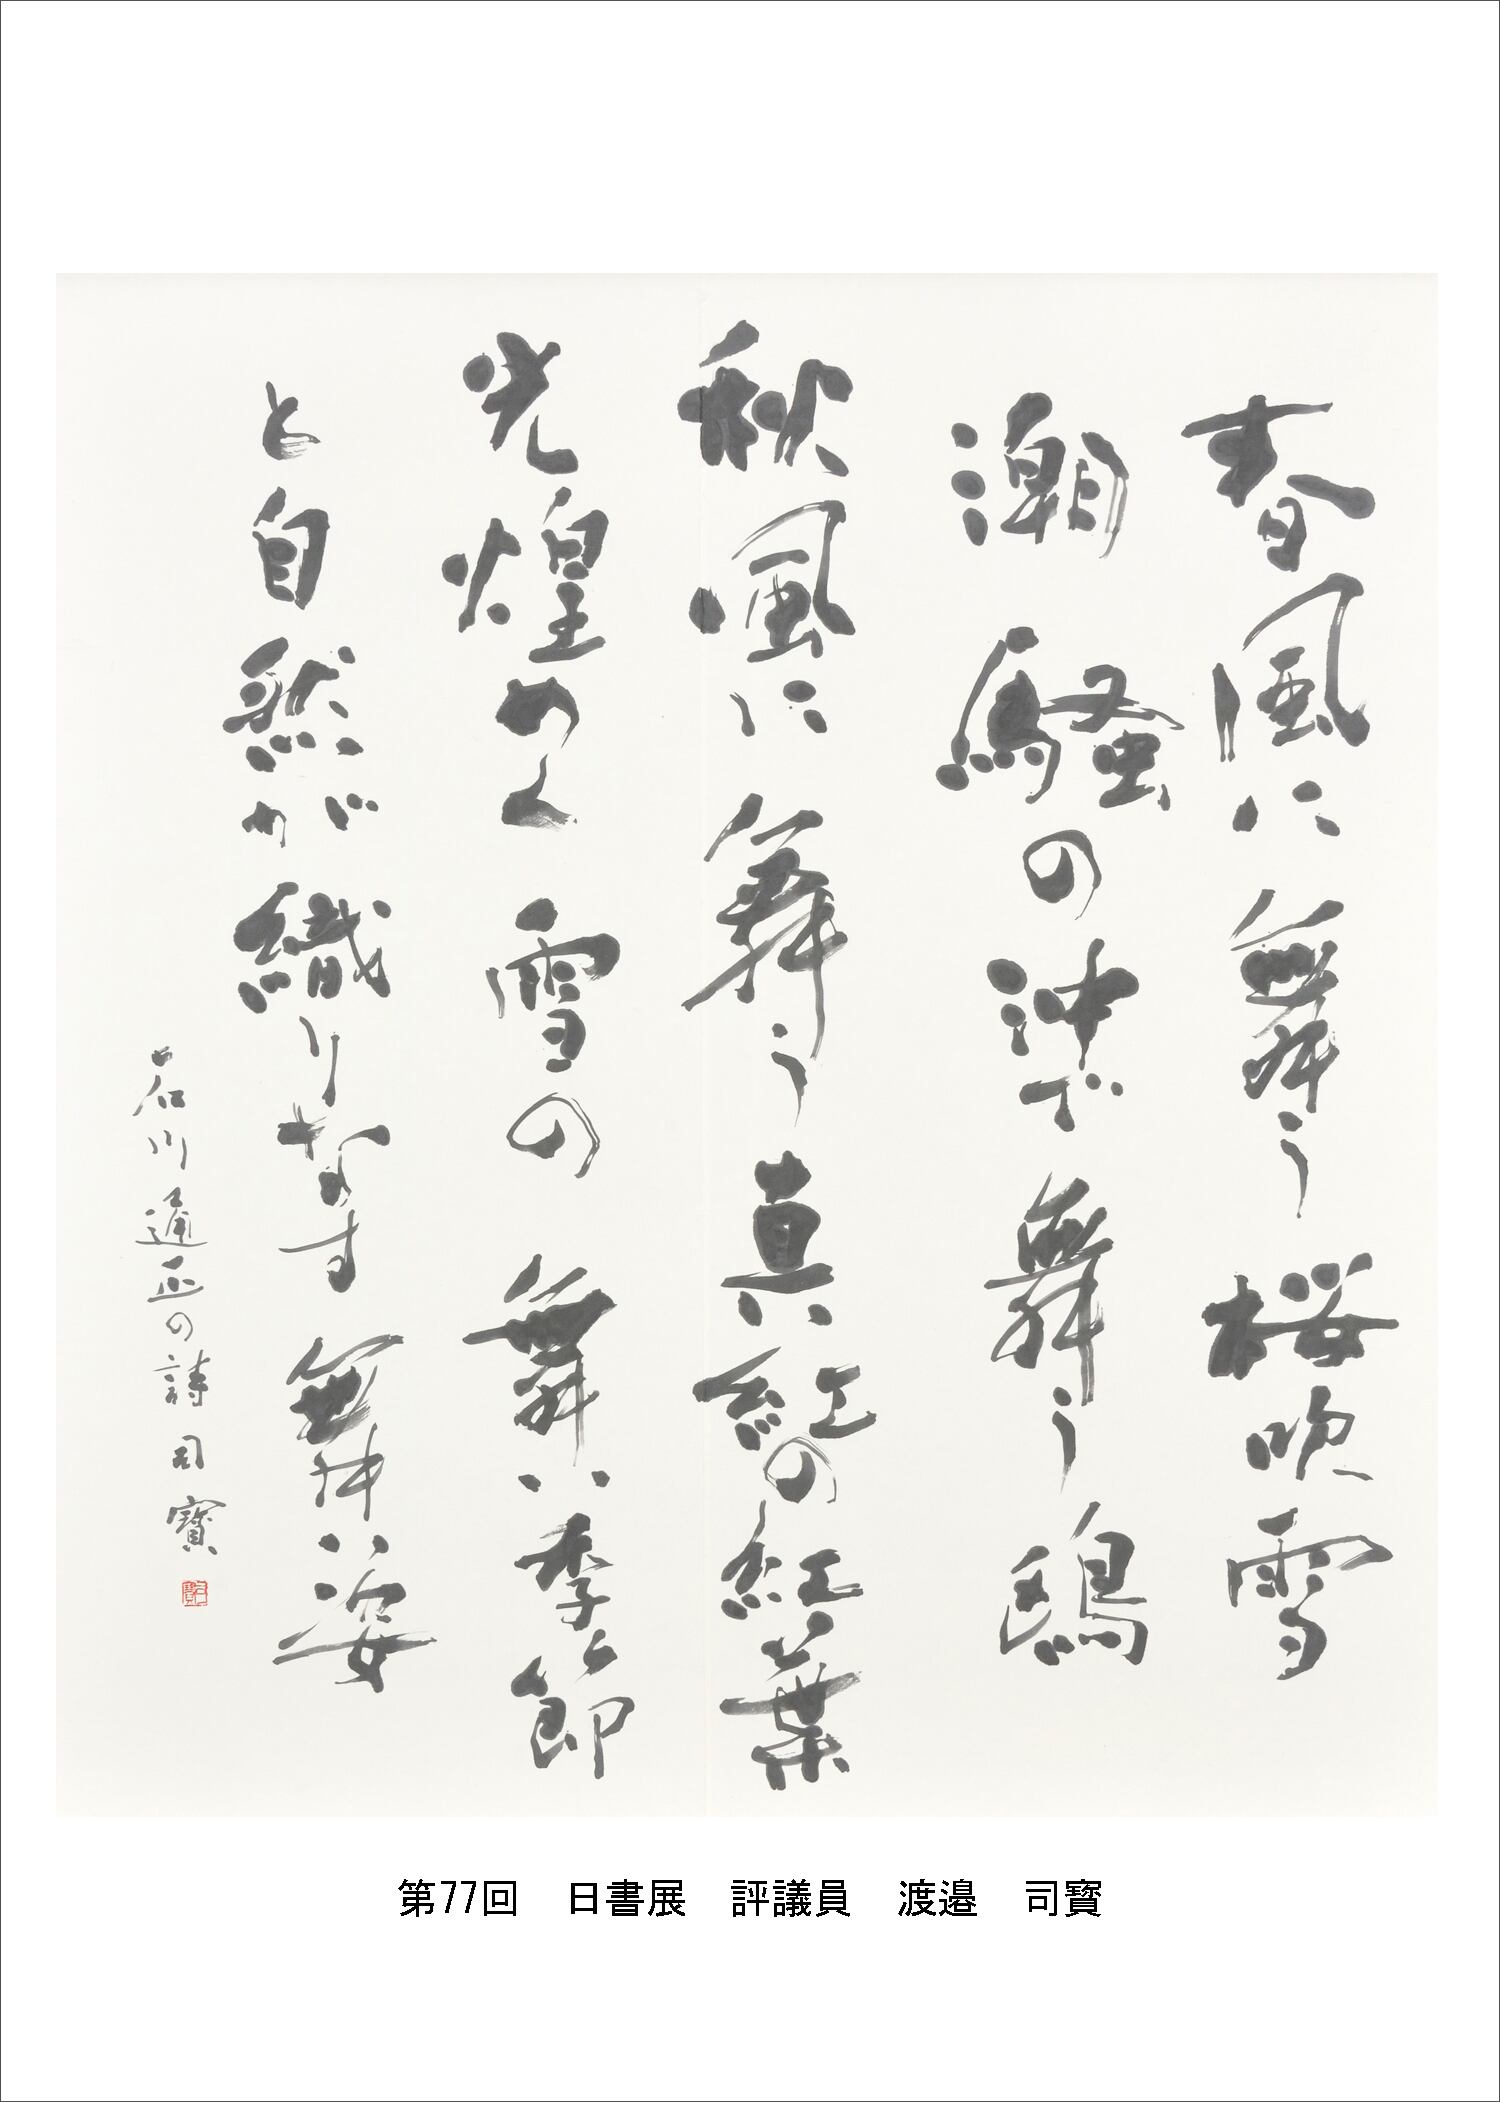 春風に舞う桜吹雪
潮騒の沖で舞う鴎
秋風に舞う真紅の紅葉
光煌めく雪の舞い季節
と自然が織りなす舞い姿
石川通正の詩 司寶
第77回　日書展　評議員　渡邉　司寳